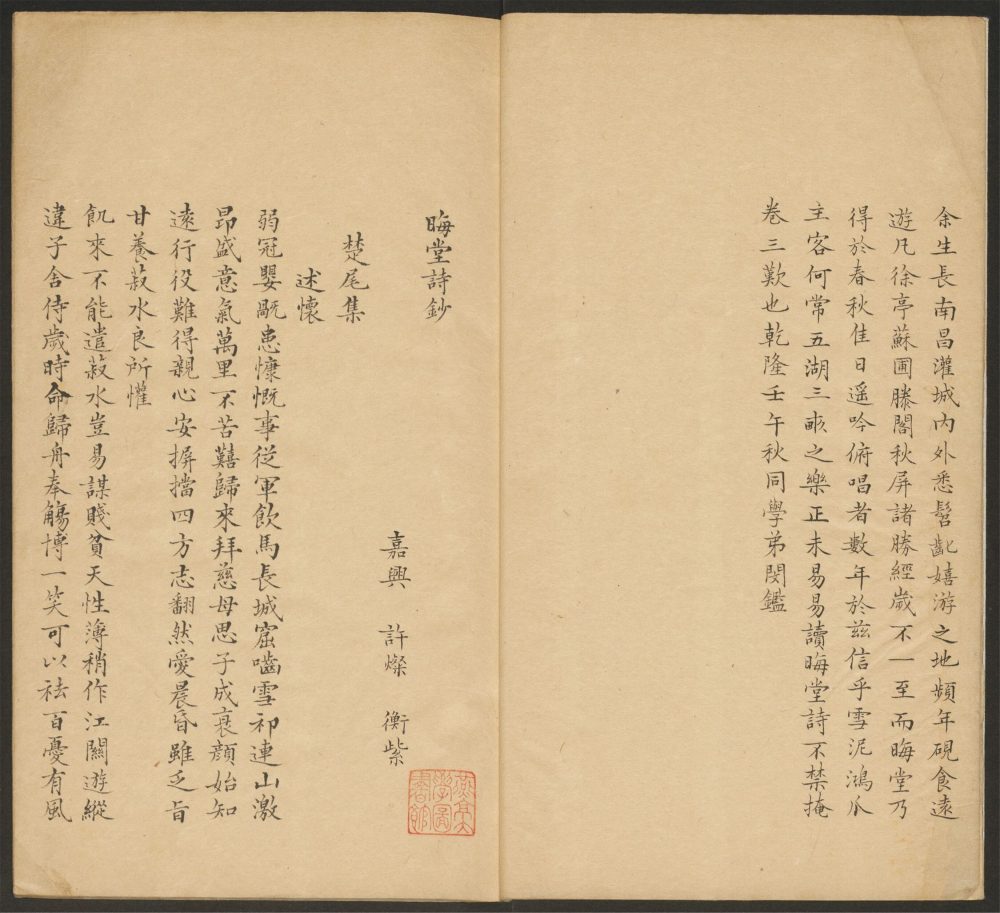 余生長南昌灌城内外悉髫齔嬉游之地頻年硯食遠
遊凡徐亭蘇圃滕閣秋屏諸勝經歲不一至而晦堂乃
得於春秋佳日遥吟俯唱者數年於兹信乎雪泥鴻爪
主客何常五湖三畝之樂正未易易讀晦堂詩不禁掩
卷三歎也乾隆壬午秋同學弟閔鑑
晦堂詩鈔
嘉興 許燦 衡紫
燕京大學圖書館
楚尾集
述懷
弱冠嬰翫患慷慨事從軍飲馬長城窟嚙雪祁連山激
昂盛意氣萬里不苦囏歸來拜慈母思子成衰顔始知
遠行役難得親心安摒擋四方志翻然愛晨昏雖乏旨
甘養菽水良所懽
飢來不能遣菽水豈易謀賤貧天性薄稍作江關遊縱
違子舍侍歲時命歸舟奉觴博一笑可以袪百憂有風